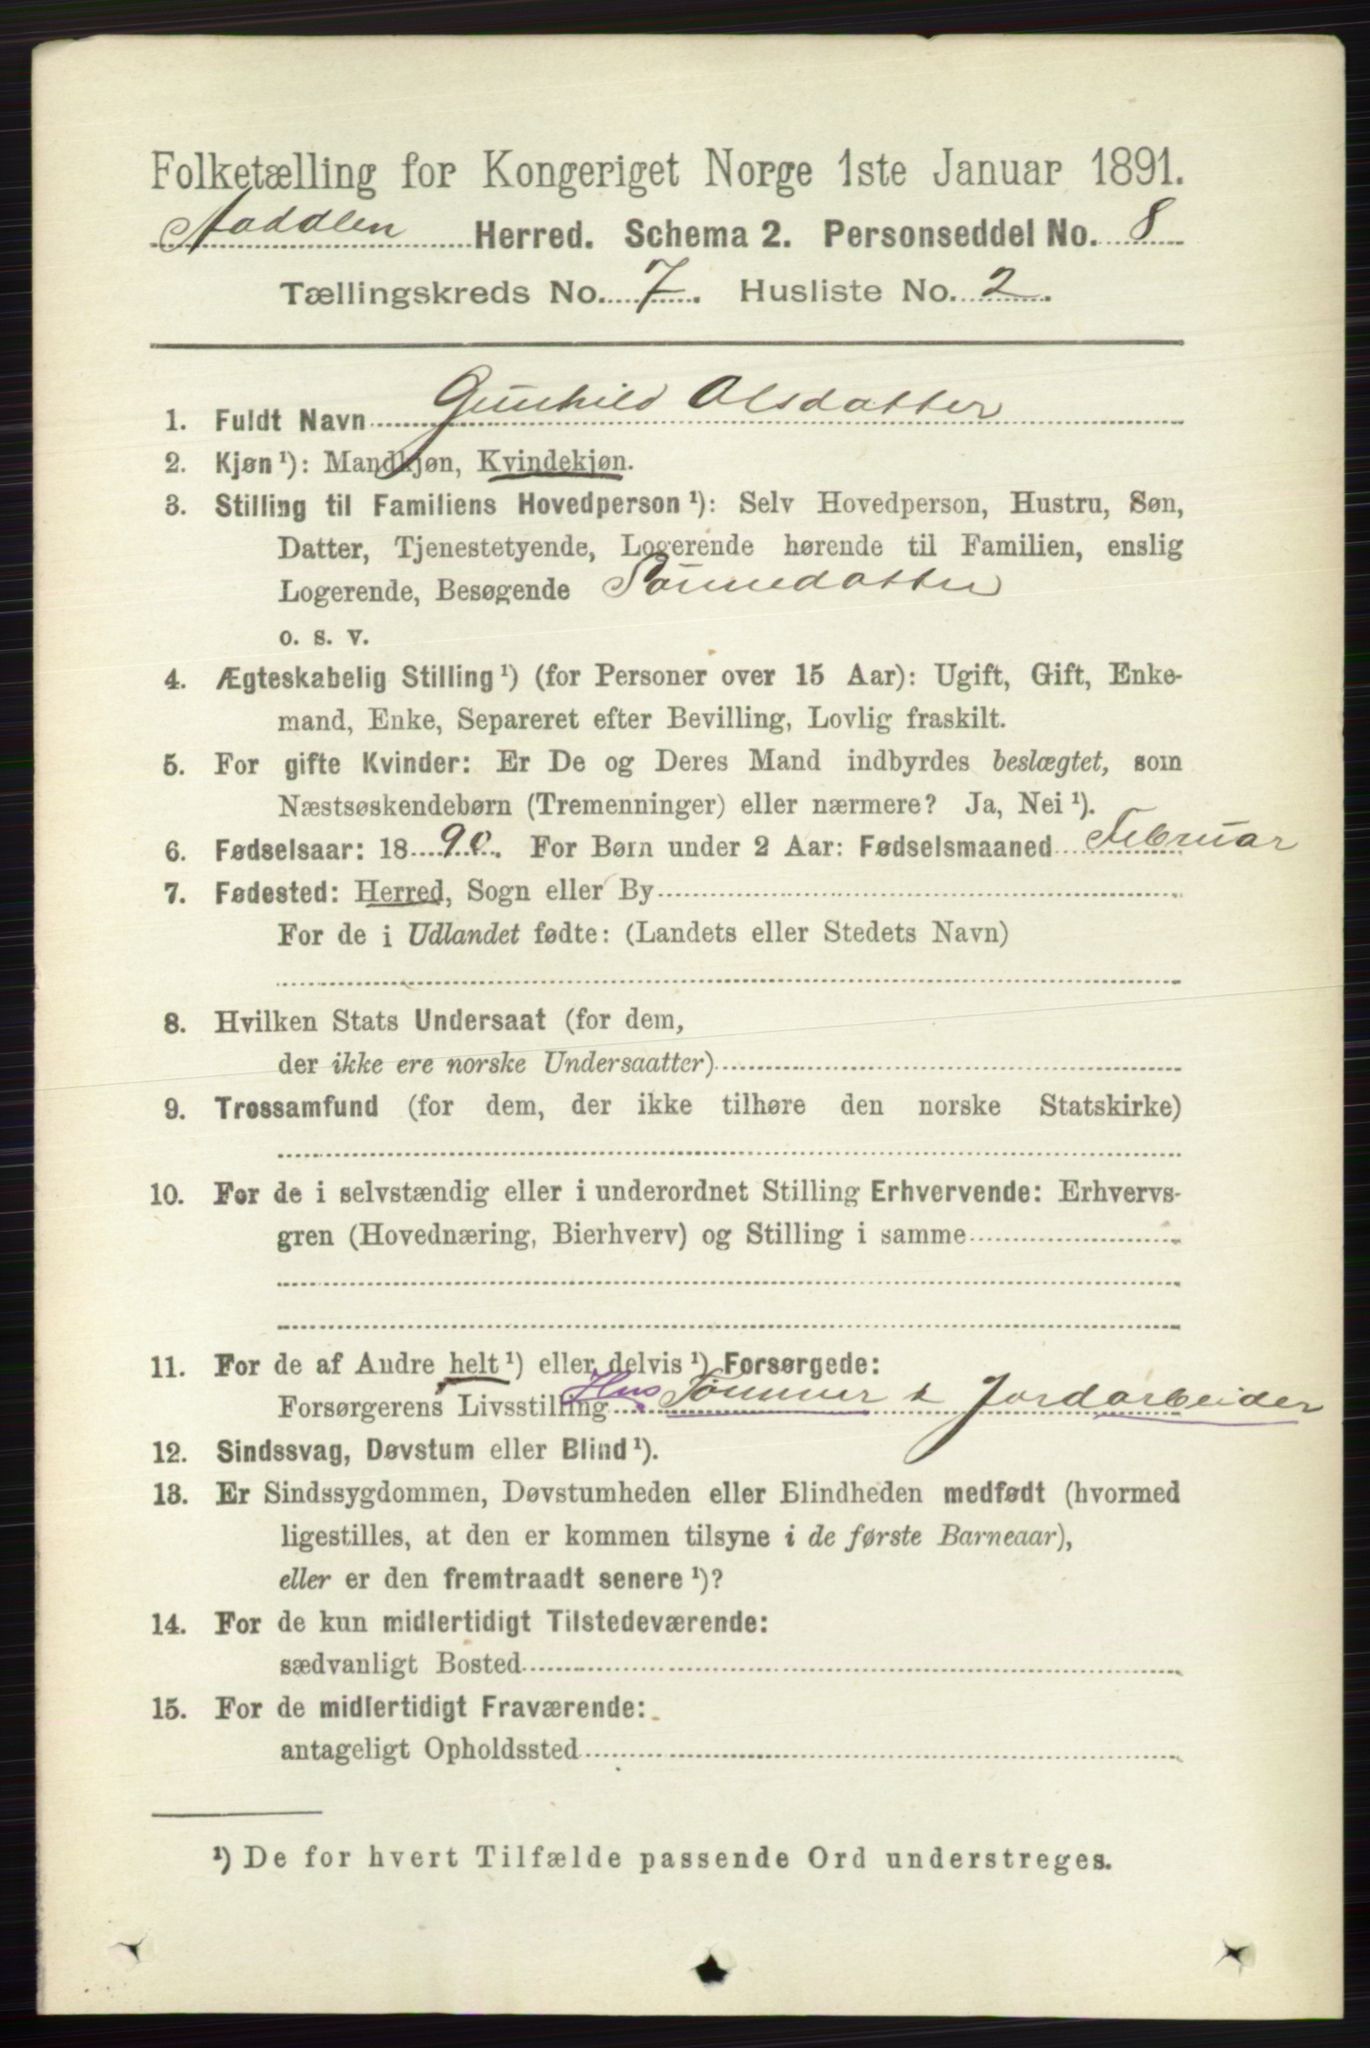 Folketælling for Kongeriget Norge 1ste Januar 1891.
Naddlen Herred. Schema 2. Personseddel No. 8
Tællingskreds No. 7. Husliste No. 2.
1. Fuldt Navn Gunhild Olsdatter
2. Kjøn¹): Mandkjøn, Kvindekjøn.
3. Stilling til Familiens Hovedperson¹): Selv Hovedperson, Hustru, Søn,
Datter, Tjenestetyende, Logerende hørende til Familien, enslig
Logerende, Besøgende Sønnedatter
o. s. v.
4. Ægteskabelig Stilling¹) (for Personer over 15 Aar): Ugift, Gift, Enke-
mand, Enke, Separeret efter Bevilling, Lovlig fraskilt.
5. For gifte Kvinder: Er De og Deres Mand indbyrdes beslægtet, som
Næstsøskendebørn (Tremenninger) eller nærmere? Ja, Nei¹).
6. Fødselsaar: 1890. For Børn under 2 Aar: Fødselsmaaned Februar
7. Fødested: Herred, Sogn eller By
For de i Udlandet fødte: (Landets eller Stedets Navn)
8. Hvilken Stats Undersaat (for dem,
der ikke ere norske Undersaatter)
9. Trossamfund (for dem, der ikke tilhøre den norske Statskirke)
10. For de i selvstændig eller i underordnet Stilling Erhvervende: Erhvervs-
gren (Hovednæring, Bierhverv) og Stilling i samme
11. For de af Andre helt¹) eller delvis¹) Forsørgede:
Forsørgerens Livsstilling Hus Tømmer & Jordarbeider
12. Sindssvag, Døvstum eller Blind¹).
13. Er Sindssygdommen, Døvstumheden eller Blindheden medfødt (hvormed
ligestilles, at den er kommen tilsyne i de første Barneaar),
eller er den fremtraadt senere¹)?
14. For de kun midlertidigt Tilstedeværende:
sædvanligt Bosted
15. For de midlertidigt Fraværende:
antageligt Opholdssted
¹) De for hvert Tilfælde passende Ord understreges.